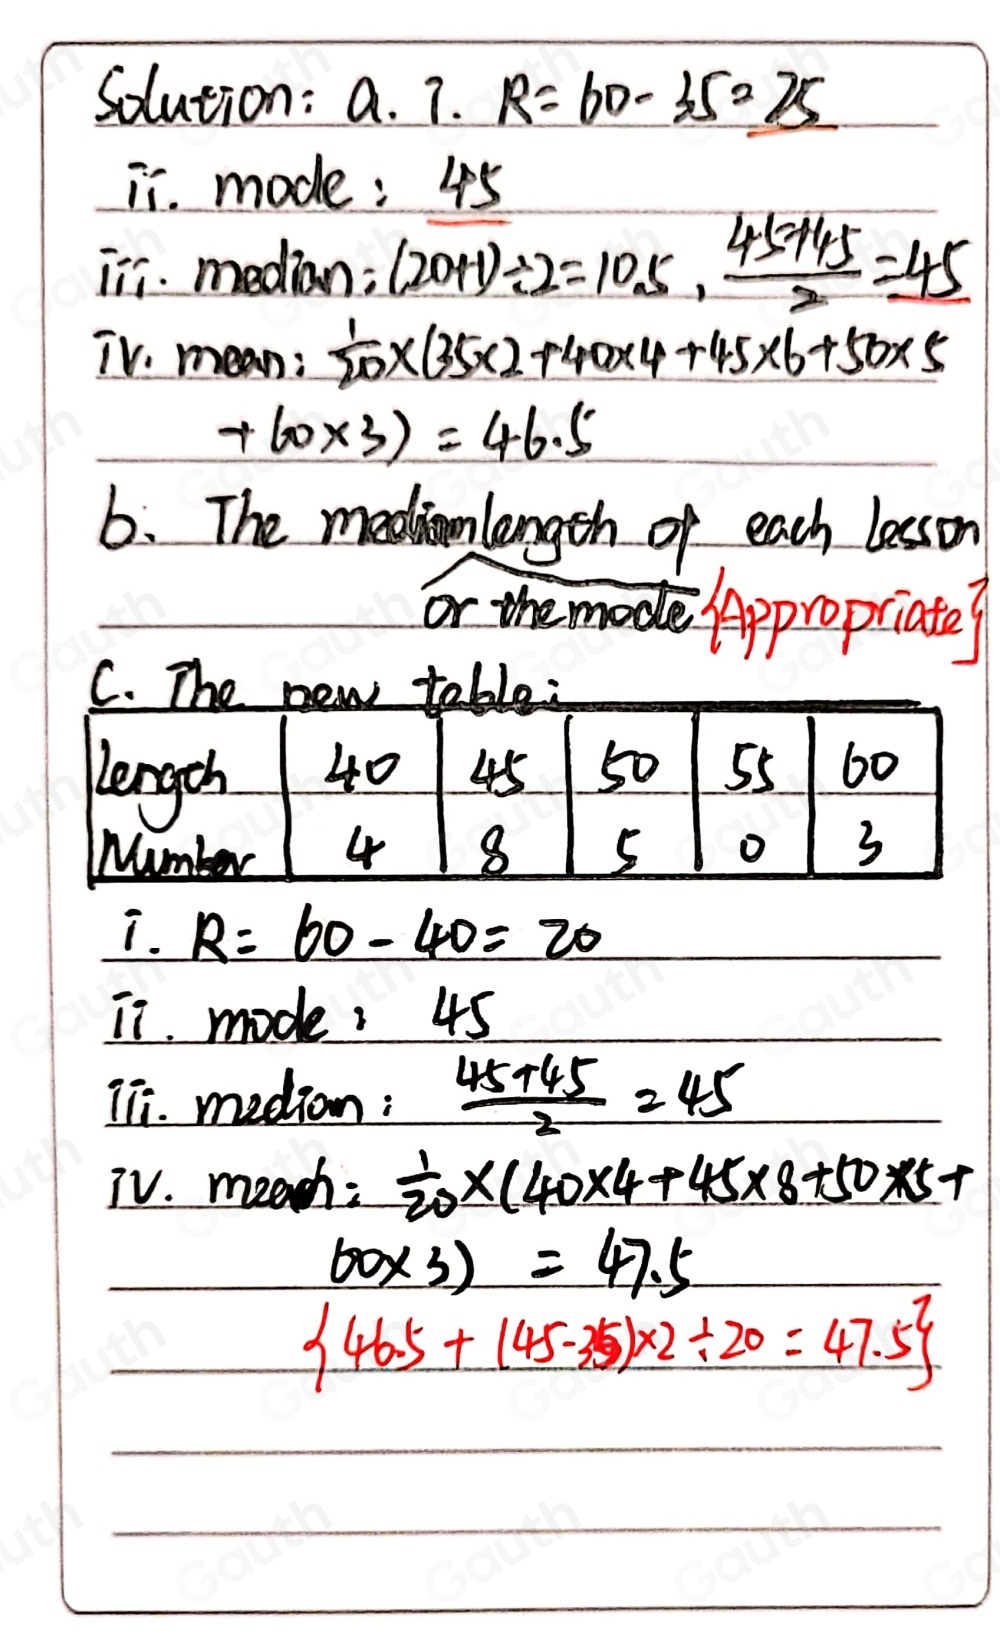 Solution: a. i. R= 60- 35= 25
ii. mode: 45
iii. median: (20+1)÷2=10.5, (45+45)/2 =45
iv. mean: 1/20×(35×2+40×4+45×6+50×5
+60×3) = 46.5
b. The median length of each lesson
or the mode {Appropriate}
C. The new table:
Length 40 45 50 55 60
Number 4 8 5 0 3
i. R= 60-40= 20
ii. mode: 45
iii. median: (45+45)/2 =45
iv. mean: 1/20×(40×4+45×8+50×5+
60×3) = 47.5
{46.5 + (45-35)×2÷20 = 47.5}